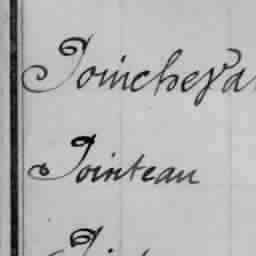 Poincheva
Pointeau